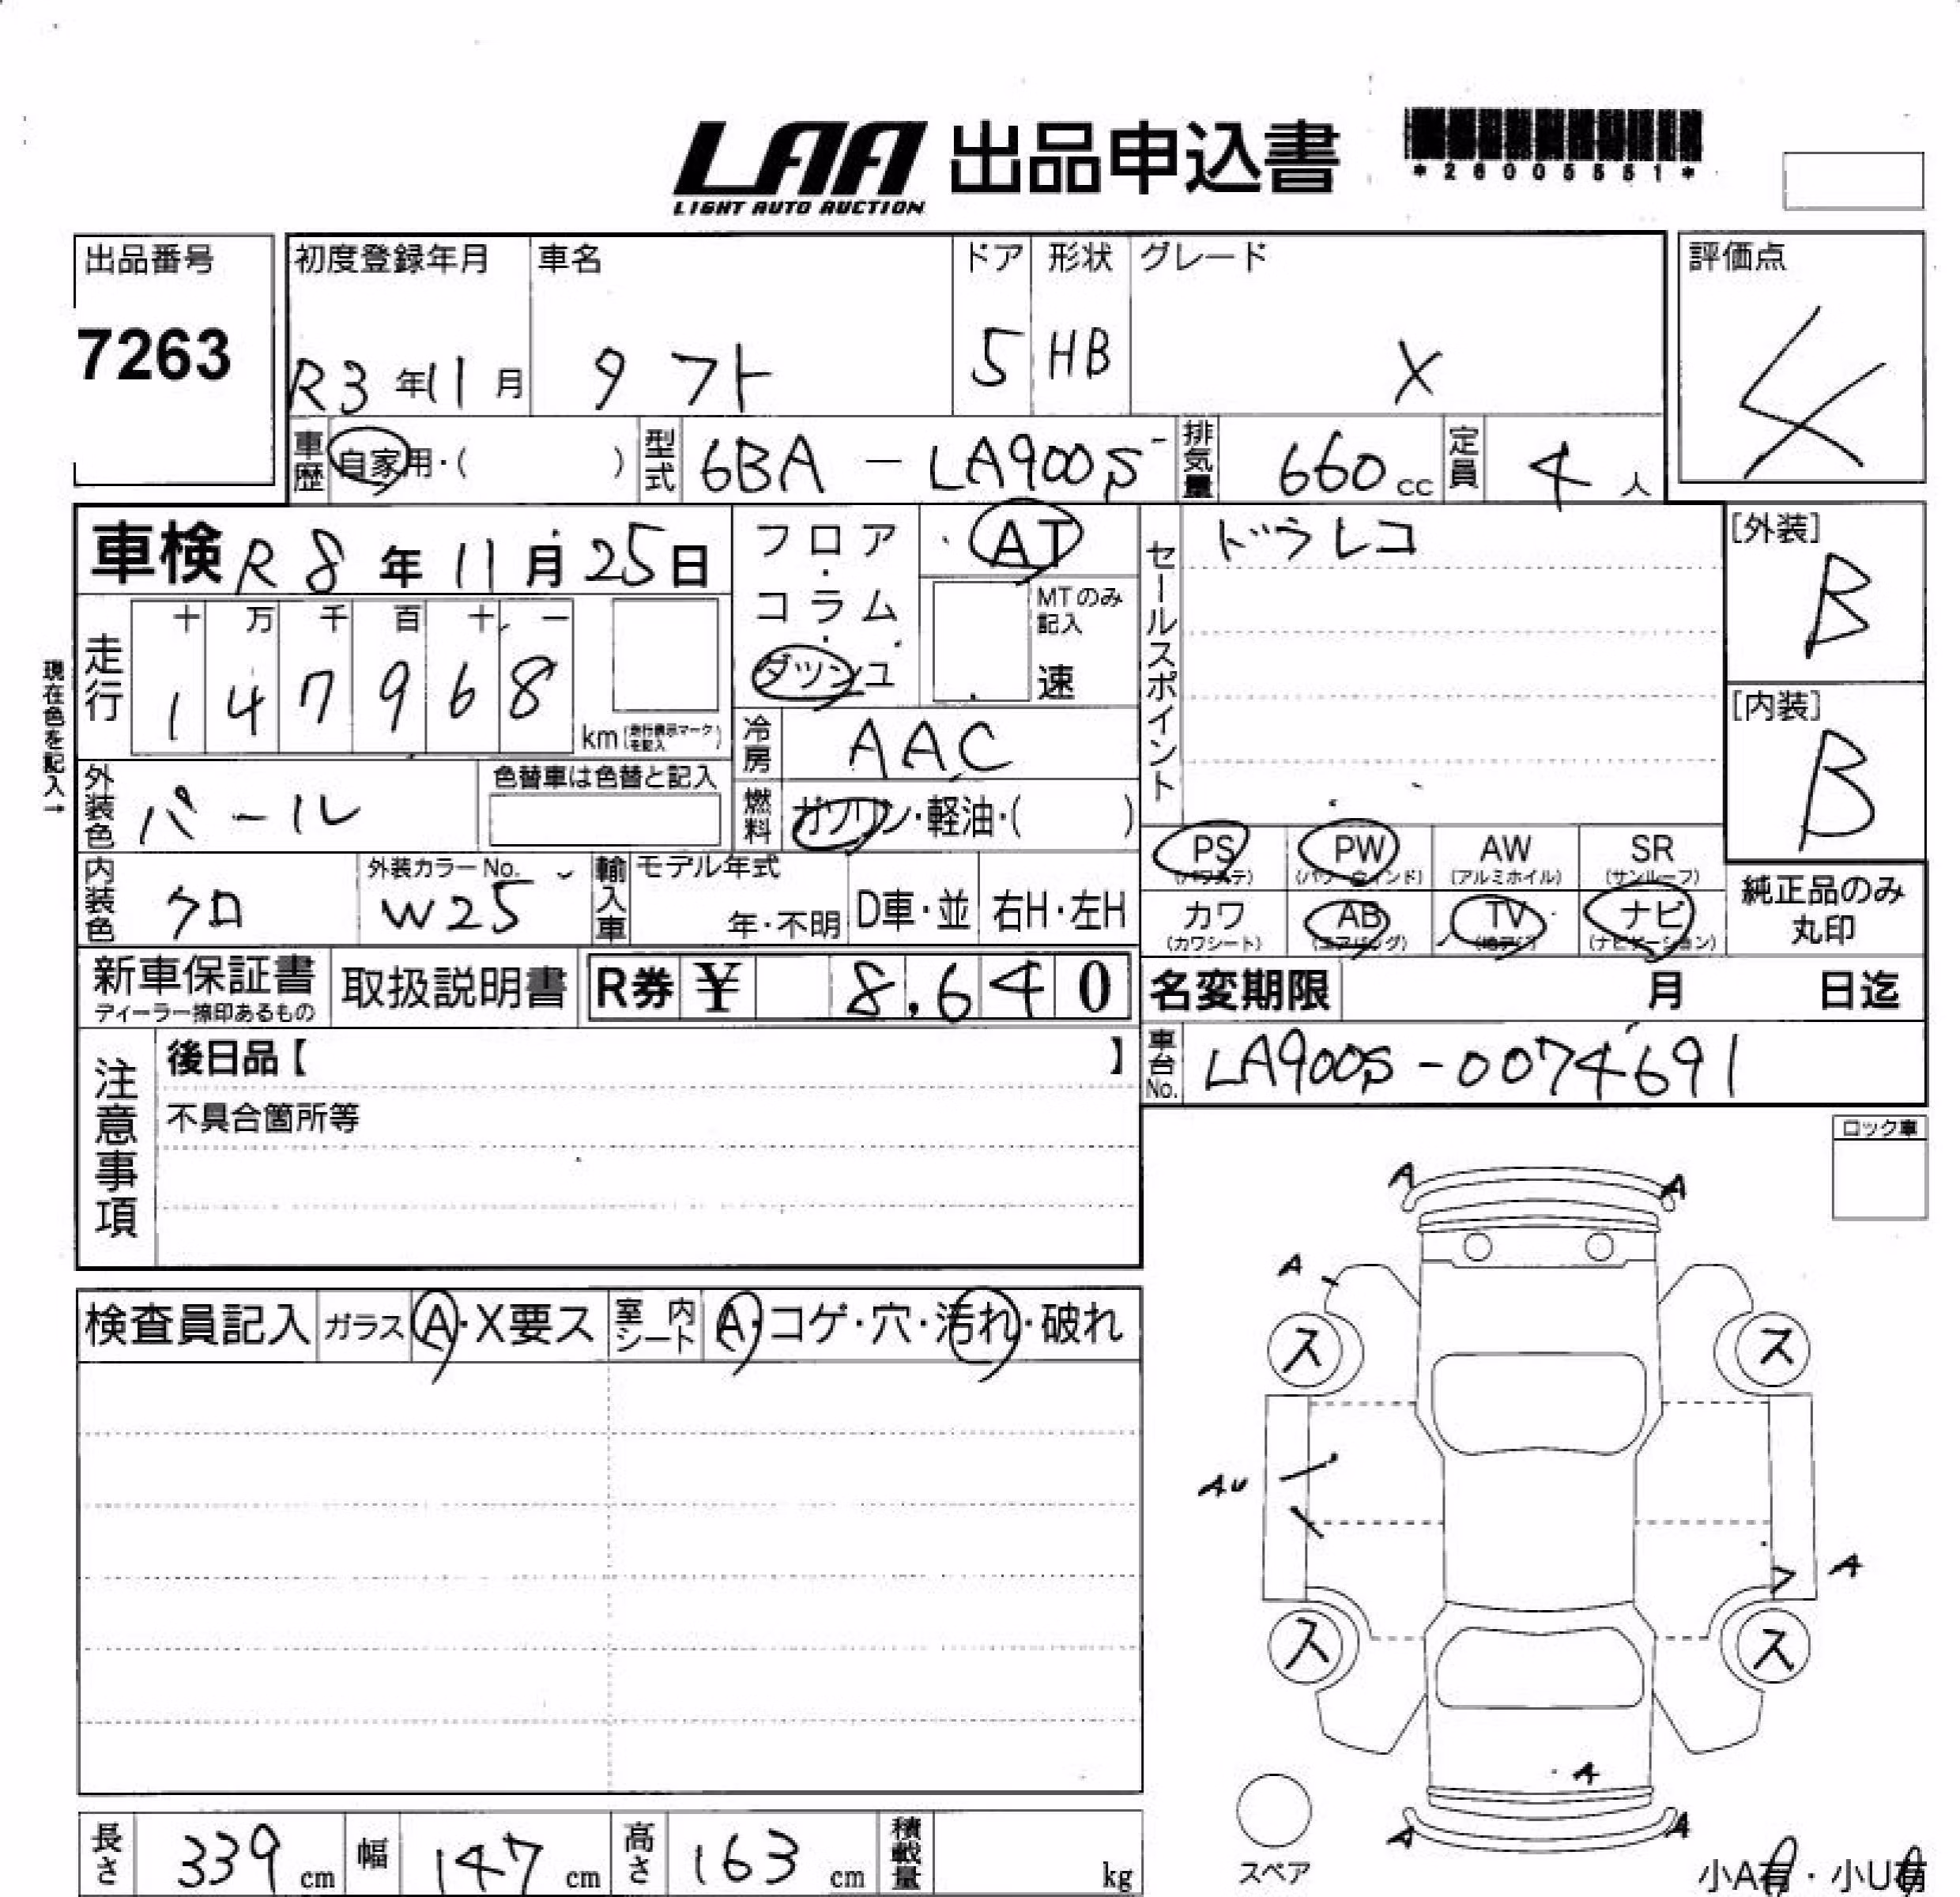 LAA 出品申込書
LIGHT AUTO AUCTION
*26005551*
出品番号
7263
初度登録年月
R3年11月
車名
タフト
ドア
5
形状
HB
グレード
X
評価点
4
車歴 自家用・( )
型式 6BA-LA900S
排気量 660cc
定員 4人
車検 R8年11月25日
フロア・コラム・ダッシュ
AT
MTのみ記入
速
セールスポイント
ドラレコ
[外装]
B
[内装]
B
現在色を記入→
走行
十 万 千 百 十 一
1 4 7 9 6 8
km(走行表示マークを記入)
冷房 AAC
燃料 ガソリン・軽油・( )
外装色 パール
色替車は色替と記入
内装色 クロ
外装カラーNo.
W25
輸入車
モデル年式
年・不明
D車・並
右H・左H
PS (パワステ)
PW (パワーウィンド)
AW (アルミホイル)
SR (サンルーフ)
カワ (カワシート)
AB (エアバッグ)
TV (地デジ)
ナビ (ナビゲーション)
純正品のみ丸印
新車保証書
ディーラー捺印あるもの
取扱説明書
R券 ¥ 8,640
名変期限 月 日迄
車台No. LA900S-0074691
注意事項
後日品【 】
不具合箇所等
ロック車
検査員記入
ガラス A・X要ス
室内シート A・コゲ・穴・汚れ・破れ
A A
A
ス ス
AU
A
ス ス
A
A A
スペア
小A有・小U有
長さ 339cm
幅 147cm
高さ 163cm
積載量 kg